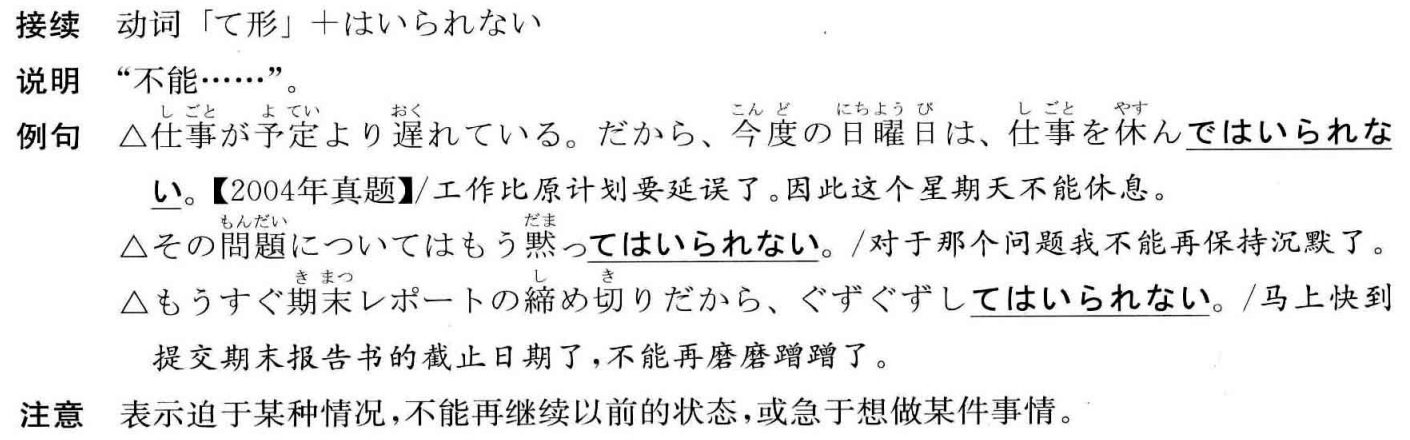 接续 动词「て形」＋はいられない
说明 “不能……”。
しごと よてい おく こんど にちようび しごと やす
例句 △仕事が予定より遅れている。だから、今度の日曜日は、仕事を休んではいられな
い。【2004年真题】/工作比原计划要延误了。因此这个星期天不能休息。
もんだい だま
△その問題についてはもう黙ってはいられない。/对于那个问题我不能再保持沉默了。
きまつ し き
△もうすぐ期末レポートの締め切りだから、ぐずぐずしてはいられない。/马上快到
提交期末报告书的截止日期了,不能再磨磨蹭蹭了。
注意 表示迫于某种情况,不能再继续以前的状态,或急于想做某件事情。